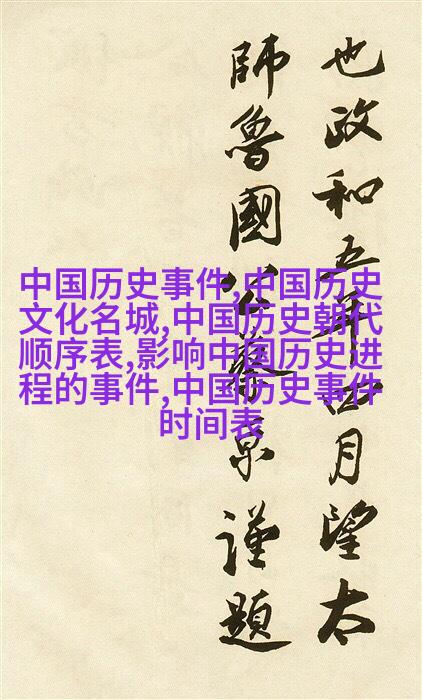 也政和五年四月望太
師魯國公蔡京謹題
中国历史事件,中国历史
文化名城,中国历史朝代
顺序表,影响中国历史进
程的事件,中国历史事件
时间表